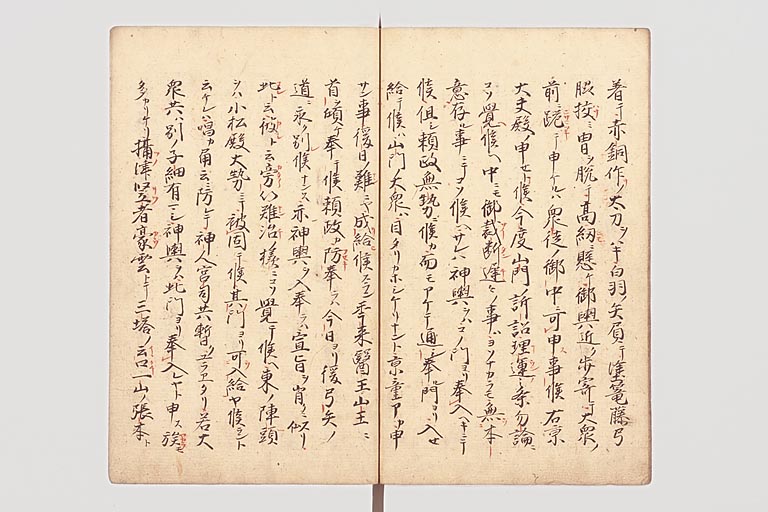 着テ赤銅作ノ太刀ヲハキ白羽ノ矢負テ滋籠藤弓
脇挟ミ冑ヲ脱テ高紐ニ懸ケ御輿近ク歩寄ヨリ大衆ノ
前ニ跪テ申ケルハ衆徒ノ御中ニ可申事候右京
大夫殿ノ申セト候今度山門ノ訴訟理運之条勿論ニ
コソ覚候ヘ中ニモ御裁断遅々ノ事ハヨソナカラモ無本
意存事ニテコソ候ヘサレハ神輿ヲハコノ門ヨリ奉入ヘキニテ
候但シ頼政無勢ニ候カ而モアケテ通シ奉門ヨリ入セ
給テ候ハ山門ノ大衆ハ目タリカホシケリナント京童ア申
サン事後日ノ難ニヤ成給候ハンスラン年来医王山王ニ
首ヲ傾ケ奉テ候頼政カ防奉ラハ今日ヨリ後弓矢ノ
道ニ永ク別候ナンス亦神輿ヲ入奉ラハ宣旨ヲ背クニ似リ
此ト云彼ト云旁以難治ノ様ニコソ覚テ候ヘ東ノ陣頭
ヲハ小松殿大勢ニテ被固テ候其門ヨリ可入給ヤ候ヨト
云ケレハ唱カ角云ニ防レテ神人宮司共暫ユラヱタリ若大
衆共ハ別ノ子細有ヘシ神輿ヲハ此門ヨリ奉入レヤト申ス族モ
多カリケリ摂津竪者豪雲トテ三塔ノ云口一山ノ張本ト